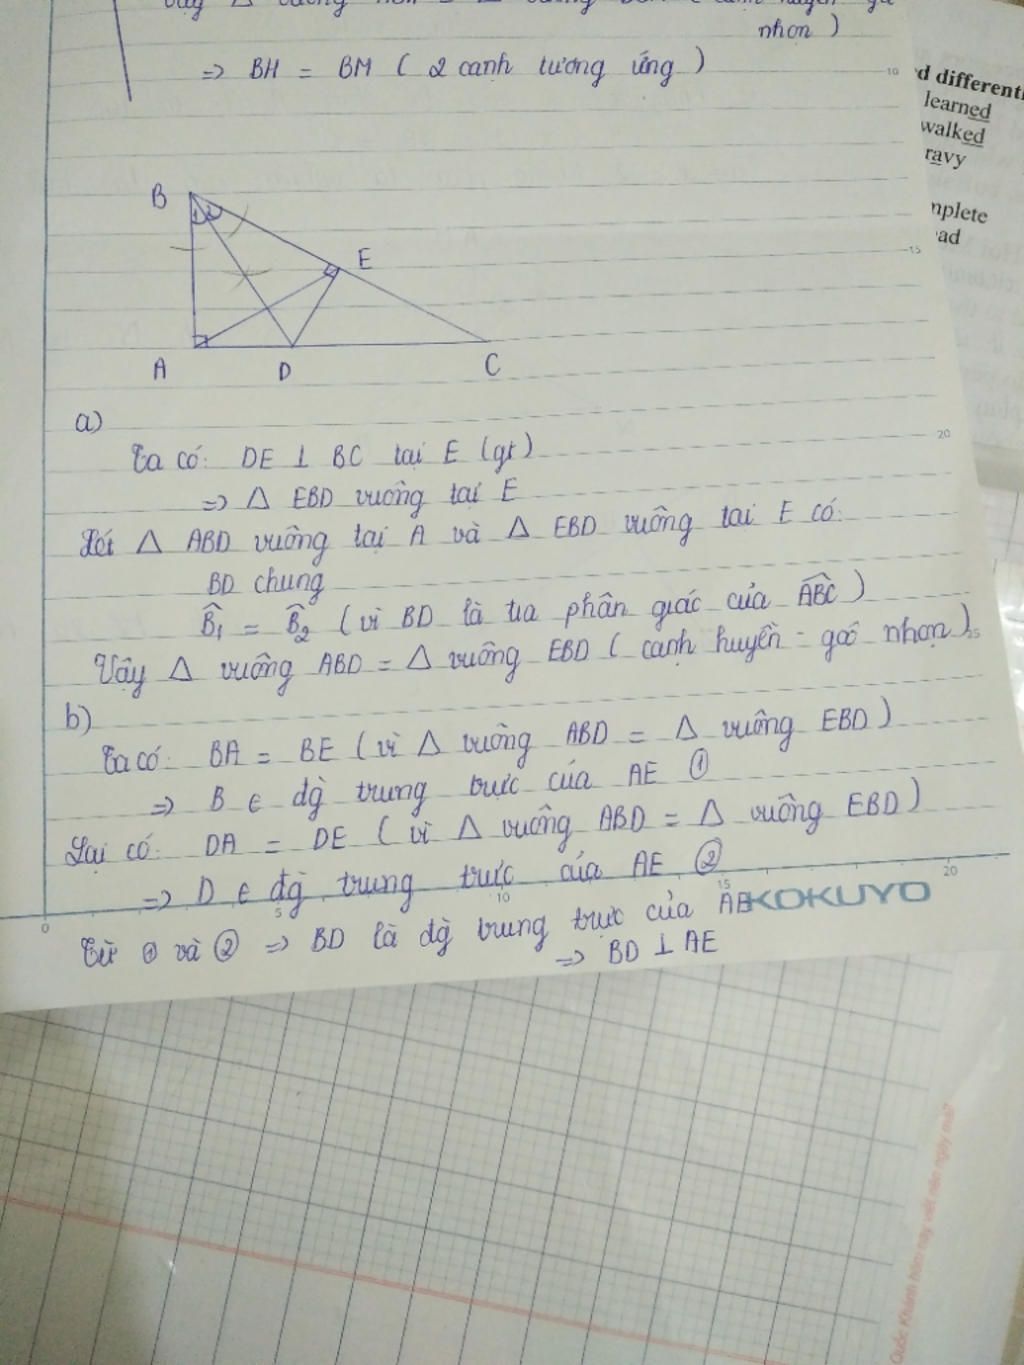 nhọn )
=> BH = BM ( 2 cạnh tương ứng )
10
d different
learned
walked
ravy
mplete
ad
15
B
1 2
E
A
D
C
a)
20
Ta có: DE ⊥ BC tại E (gt)
=> △ EBD vuông tại E
Xét △ ABD vuông tại A và △ EBD vuông tại E có:
BD chung
B̂₁ = B̂₂ ( vì BD là tia phân giác của ABC )
Vậy △ vuông ABD = △ vuông EBD ( cạnh huyền - góc nhọn )
25
b)
Ta có: BA = BE ( vì △ vuông ABD = △ vuông EBD )
=> B ∈ đg trung trực của AE ①
Lại có: DA = DE ( vì △ vuông ABD = △ vuông EBD )
=> D ∈ đg trung trực của AE ②
0 5 10 15 20
KOKUYO
Từ ① và ② => BD là đg trung trực của AE
=> BD ⊥ AE
Quốc Khánh hôm nay viết nên ngày mai?